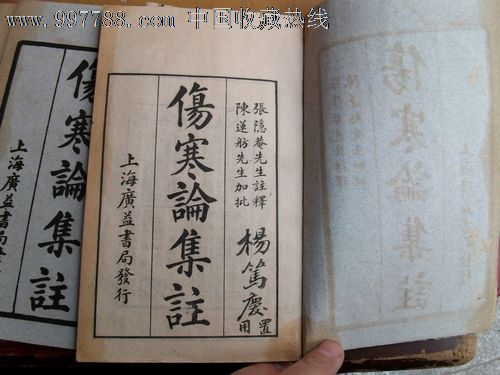 www.997788.com 中国收藏热线
張隐菴先生註釋
陳蓮舫先生加批
楊篤慶
置用
傷寒論集註
上海廣益書局發行
傷寒論集註
上海廣益書局
傷寒論集註